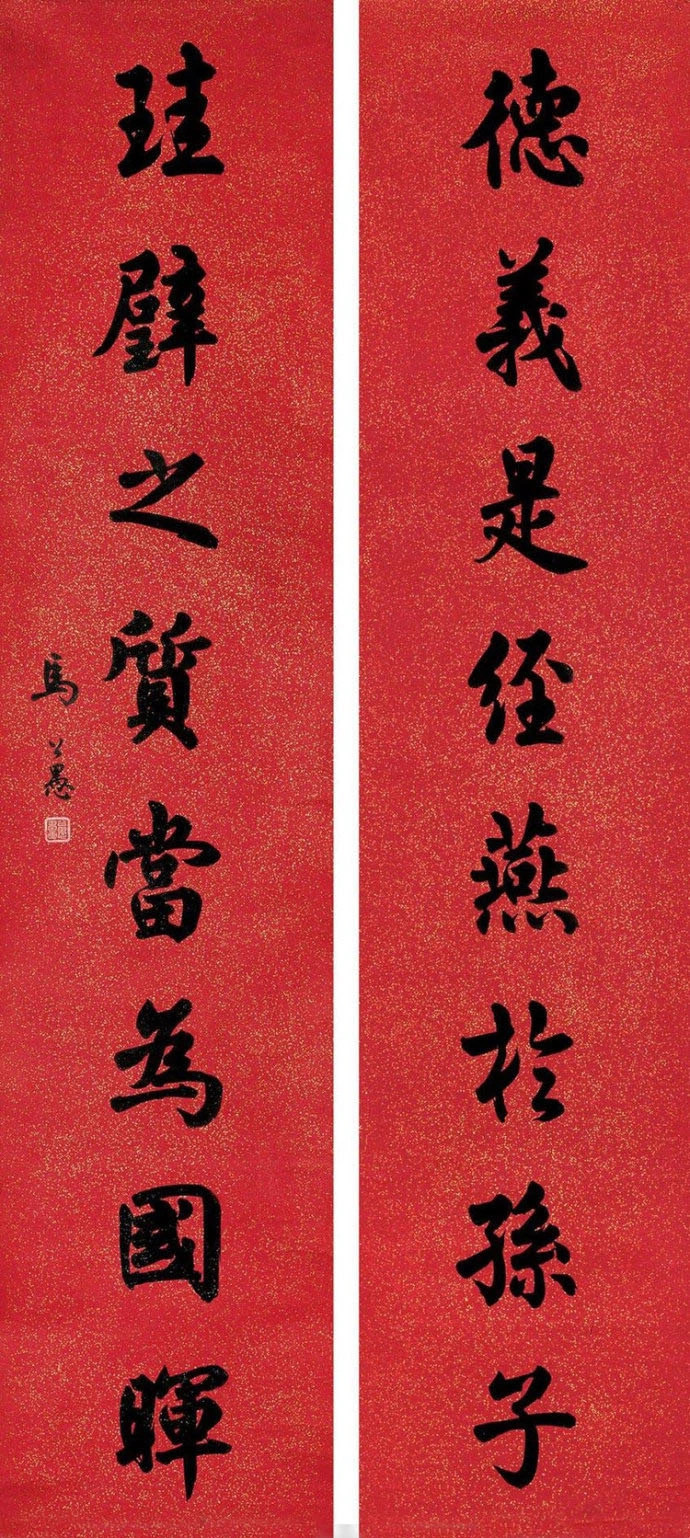 德義是經燕於孫子
珪璧之質當為國暉
馬公愚